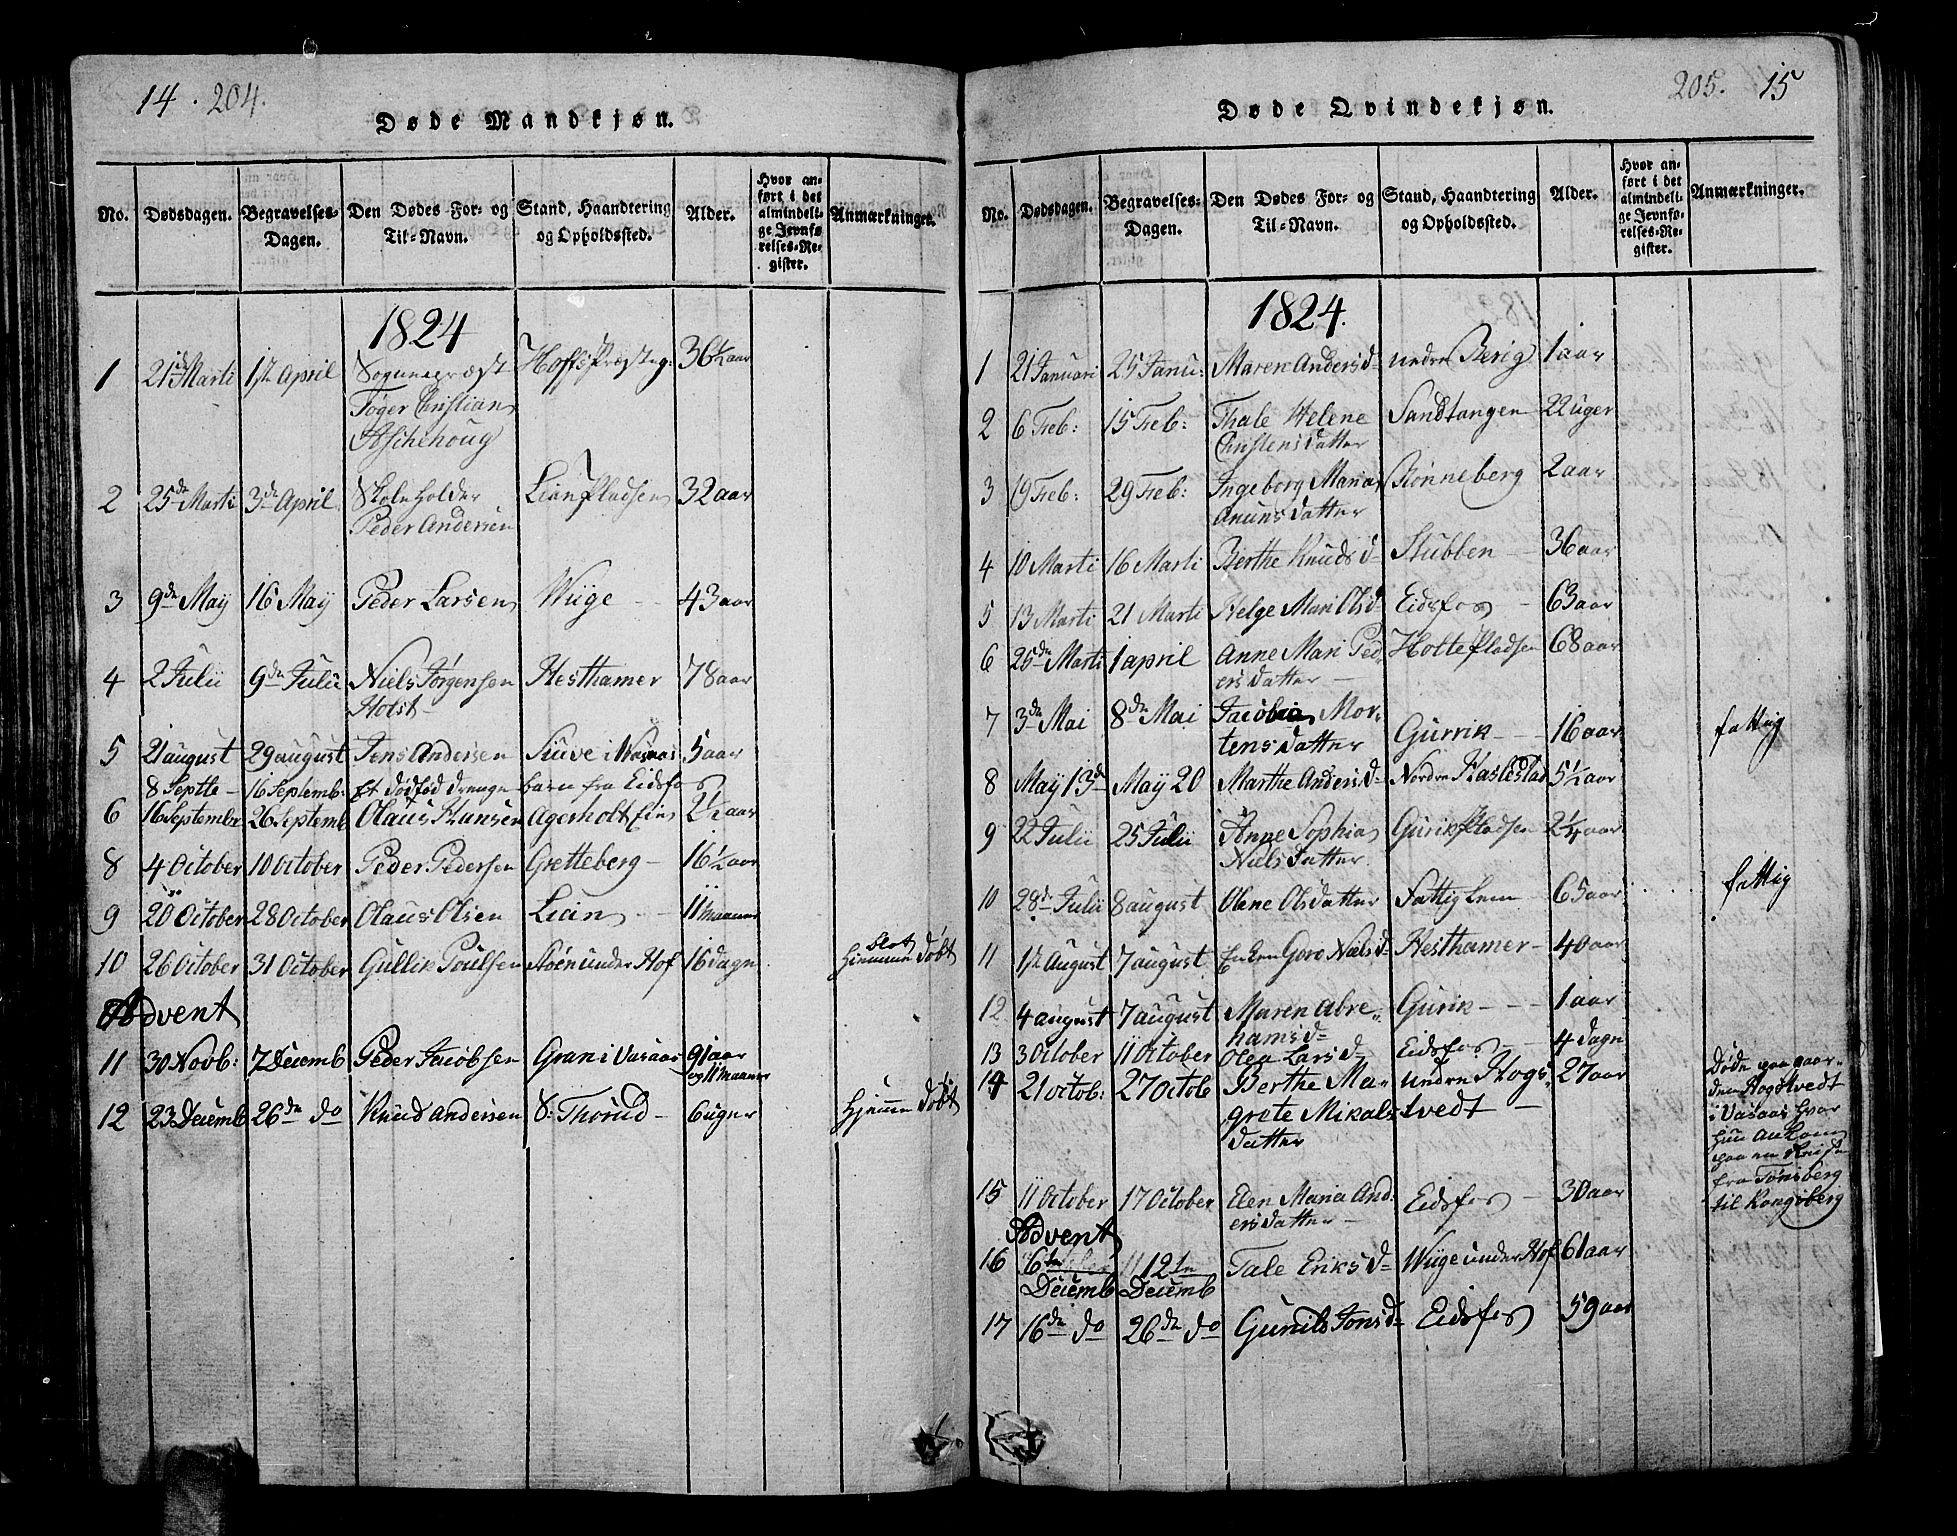 14 . 204.
Døde Mandkjøn.
No. Dødsdagen. Begravelses-Dagen. Den Dødes For- og Til-Navn. Stand, Haandtering og Opholdssted. Alder. Hvor anført i det almindelige Jevnførelses-Register. Anmærkninger.
1824
1 21de Marti 1ste April Sognepræst Tøger Christian Aschehoug Hoffs Præsteg: 36½ aar
2 25de Marti 3de April Skoleholder Peder Andersen Lian Pladsen 32 aar
3 9de May 16 May Peder Larsen Wiige 43 aar
4 2 Julii 9de Julii Niels Jørgensen Holst Hesthamer 78 aar
5 21 august 29 august Jens Andersen i Vasaas 5 aar
8 Septte 16 Septemb: Et dødfød Drenge barn fra Eidsfos
6 16 Septembr 26 Septemb Olaus Hansen Agerholt Eie 2½ aar
8 4 October 10 October Peder Pedersen Gretteberg 16½ aar
9 20 October 28 October Olaus Olsen Lian 11 maaner
10 26 October 31 October Gullik Poulsen under Hof 16 dagn blot hiemme døbt
Advent
11 30 Novb: 7 Decemb Peder Jacobsen Gran i Vasaas 91 aar og 11 maaner
12 23 Decemb 26de do Knud Andersen S: Thorud 6 uger Hjemme døbt
205. 15
Døde Qvindekjøn.
No. Dødsdagen. Begravelses-Dagen. Den Dødes For- og Til-Navn. Stand, Haandtering og Opholdssted. Alder. Hvor anført i det almindelige Jevnførelses-Register. Anmærkninger.
1824.
1 21 Januari 25 Janu: Maren Andersd undre Berig 1 aar
2 6 Feb: 15 Feb: Thale Helene Christensdatter Sandtangen 22 uger
3 19 Feb: 29 Feb: Ingeborg Maria Anunsdatter Rønneberg 2 aar
4 10 Marti 16 Marti Berthe Knudsd Stubben 36 aar
5 13 Marti 21 Marti Helge Mari Olsd Eidsfos 63 aar
6 25de Marti 1 april Anne Mari Pedersdatter Holte Pladsen 68 aar
7 3de Mai 8de Mai Jacobia Mortensdatter Gurrik 16 aar fattig
8 May 13d May 20 Marthe Andersd Nordre Haslestad 5½ aar
9 22 Julii 25 Julii Anne Sophia Nielsdatter Gurik Pladsen 2¼ aar
10 28de Julii 8 august Olene Olsdatter Fattig Lem 65 aar fattig
11 1ste August 7 august Enken Goro Nielsd Hesthamer 40 aar
12 4 august 7 august Maren Abrehamsd Gurik 1 aar
13 3 October 11 October Olea Larsd Eidsfos 4 dagn
14 21 octob: 27 Octob Berthe Magrete Mikalsdatter undre Hogstvedt 27 aar Døde paa gaarden Hogstvedt i Vasaas hvor hun ankom paa en Reise fra Tønsberg til Kongsberg
15 11 October 17 October Elen Maria Andersdatter Eidsfos 30 aar
Advent
16 6te Decemb 12te Decemb Tale Eriksd Wiige under Hof 61 aar
17 16de do 26de do Gunild Jonsd Eidsfos 59 aar